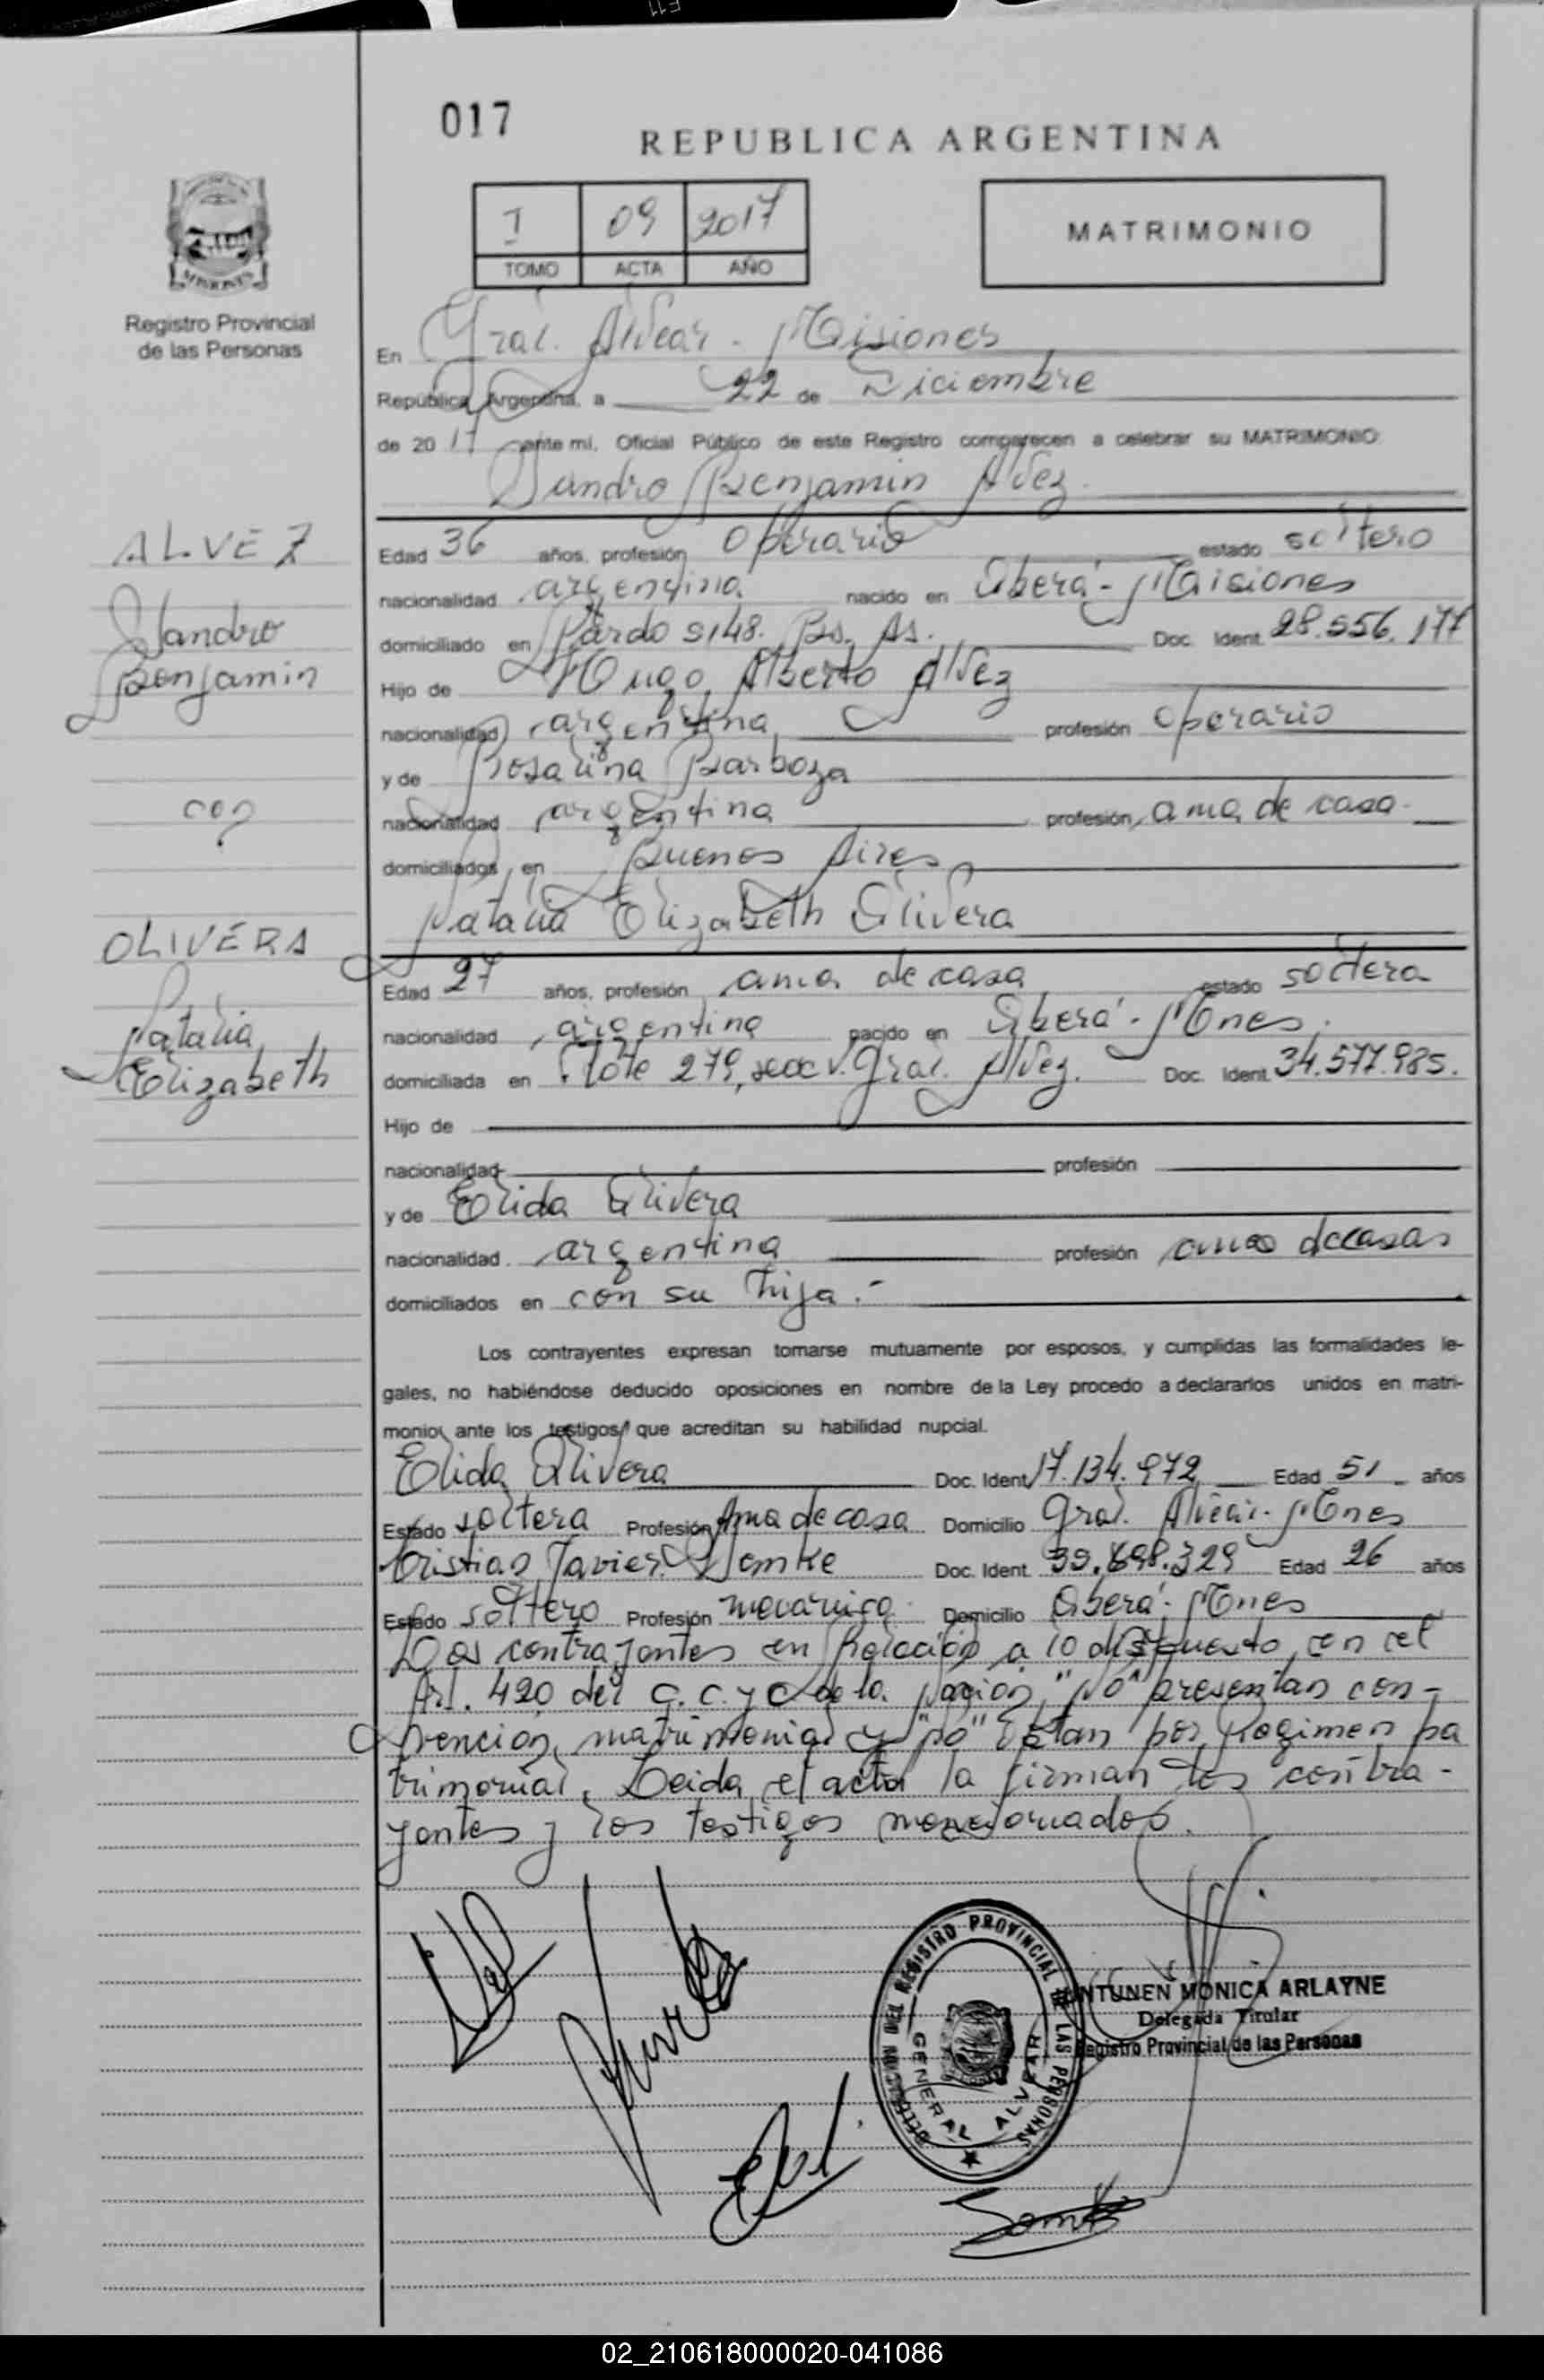 017
REPUBLICA ARGENTINA
I 09 2017
TOMO ACTA AÑO
MATRIMONIO
Registro Provincial
de las Personas
En Gral. Alvear - Misiones
República Argentina, a 22 de Diciembre
de 2017 ante mi, Oficial Público de este Registro comparecen a celebrar su MATRIMONIO:
Sandro Benjamin Alvez
ALVEZ
Sandro
Benjamin
con
OLIVERA
Natalia
Elizabeth
Edad 36 años, profesión operario estado soltero
nacionalidad argentina nacido en Oberá - Misiones
domiciliado en Pardo s/48. Bs. As. Doc. Ident. 28.556.177
Hijo de Hugo Alberto Alvez
nacionalidad argentina profesión operario
y de Rosalina Barboza
nacionalidad argentina profesión ama de casa
domiciliados en Buenos Aires
Natalia Elizabeth Olivera
Edad 27 años, profesión ama de casa estado soltera
nacionalidad argentina nacido en Oberá - Mnes.
domiciliada en Lote 279, Gral. Alvez. Doc. Ident. 34.577.985.
Hijo de
nacionalidad profesión
y de Elida Olivera
nacionalidad argentina profesión amas de casas
domiciliados en con su hija.-
Los contrayentes expresan tomarse mutuamente por esposos, y cumplidas las formalidades le-
gales, no habiéndose deducido oposiciones en nombre de la Ley procedo a declararlos unidos en matri-
monio, ante los testigos que acreditan su habilidad nupcial.
Elida Olivera Doc. Ident 17.134.972 Edad 51 años
Estado soltera Profesión Ama de casa Domicilio Gral. Alvear - Mnes
Cristian Javier Doc. Ident. Edad 26 años
Estado soltero Profesión Domicilio Oberá - Mnes
Los contrayentes en Relación a lo dispuesto en el
Art. 420 del C.C. y C de la Nación, "No" presentan con-
vención matrimonial y "no" optan por Regimen pa
trimonial. Leida el acta la firman los contra-
yentes y los testigos mencionados.
DELEGACION DEL REGISTRO PROVINCIAL DE LAS PERSONAS
GENERAL ALVEAR
MONICA ARLAYNE
Delegada Titular
Registro Provincial de las Personas
02_210618000020-041086